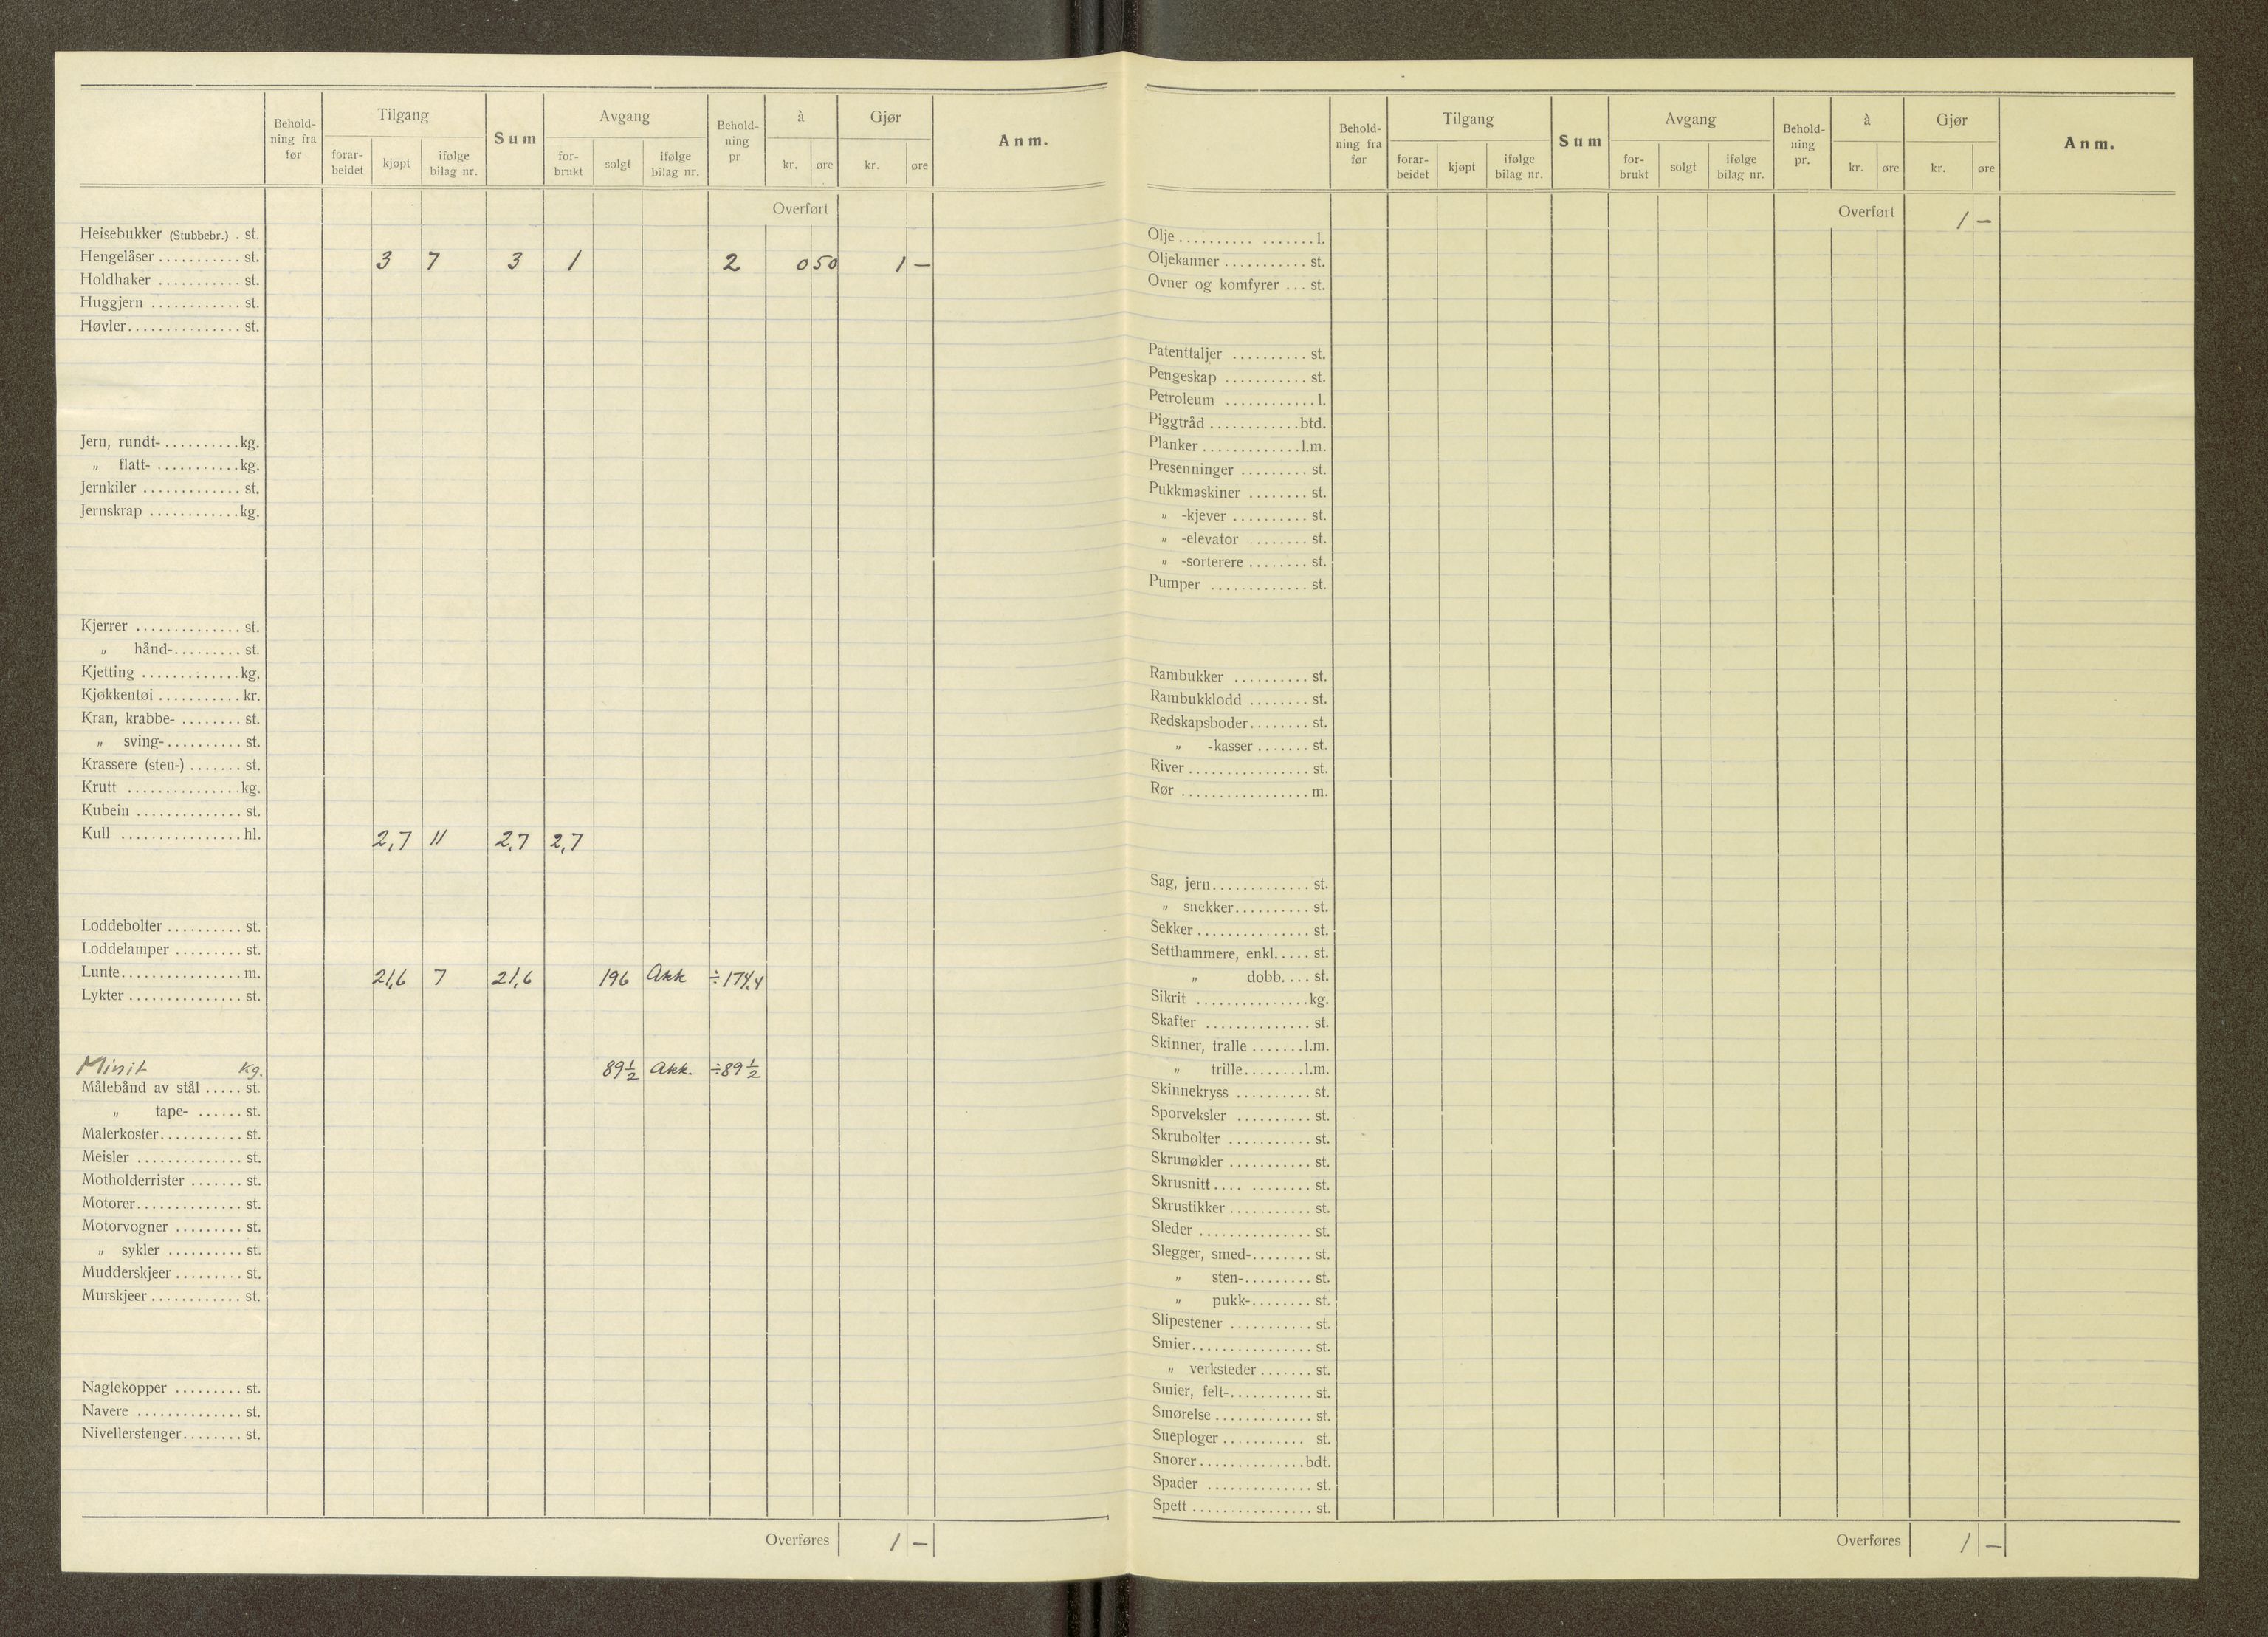 Behold-
ning fra
før
Tilgang
forar-
beidet
kjøpt
ifølge
bilag nr.
Sum
Avgang
for-
brukt
solgt
ifølge
bilag nr.
Behold-
ning
pr
à
kr. øre
Gjør
kr. øre
Anm.
Overført
Heisebukker (Stubbebr.) . st.
Hengelåser ........... st. 3 7 3 1 2 0 50 1 —
Holdhaker ........... st.
Huggjern ............ st.
Høvler............... st.
Jern, rundt- ..........kg.
„ flatt- ...........kg.
Jernkiler ............. st.
Jernskrap ............kg.
Kjerrer .............. st.
„ hånd-......... st.
Kjetting .............kg.
Kjøkkentøi ........... kr.
Kran, krabbe- ........ st.
„ sving-.......... st.
Krassere (sten-) ....... st.
Krutt ...............kg.
Kubein .............. st.
Kull ................hl. 2,7 11 2,7 2,7
Loddebolter .......... st.
Loddelamper ......... st.
Lunte................ m. 21,6 7 21,6 196 Akk ÷174,4
Lykter ............... st.
Minit Kg. 89 1/2 Akk. ÷89 1/2
Målebånd av stål ..... st.
„ tape- ...... st.
Malerkoster........... st.
Meisler .............. st.
Motholderrister ....... st.
Motorer.............. st.
Motorvogner ......... st.
„ sykler .......... st.
Mudderskjeer ......... st.
Murskjeer ............ st.
Naglekopper ......... st.
Navere .............. st.
Nivellerstenger........ st.
Overføres 1 —
Behold-
ning fra
før
Tilgang
forar-
beidet
kjøpt
ifølge
bilag nr.
Sum
Avgang
for-
brukt
solgt
ifølge
bilag nr.
Behold-
ning
pr.
à
kr. øre
Gjør
kr. øre
Anm.
Overført 1 —
Olje.......... .......l.
Oljekanner ........... st.
Ovner og komfyrer ... st.
Patenttaljer .......... st.
Pengeskap ........... st.
Petroleum ............l.
Piggtråd ............btd.
Planker .............l.m.
Presenninger ......... st.
Pukkmaskiner ........ st.
„ -kjever .......... st.
„ -elevator ........ st.
„ -sorterere ........ st.
Pumper ............. st.
Rambukker .......... st.
Rambukklodd ........ st.
Redskapsboder........ st.
„ -kasser ....... st.
River ................ st.
Rør ................. m.
Sag, jern............. st.
„ snekker.......... st.
Sekker ............... st.
Setthammere, enkl..... st.
„ dobb.... st.
Sikrit ...............kg.
Skafter .............. st.
Skinner, tralle .......l.m.
„ trille........l.m.
Skinnekryss .......... st.
Sporveksler .......... st.
Skrubolter ........... st.
Skrunøkler ........... st.
Skrusnitt.... ........ st.
Skrustikker ........... st.
Sleder ............... st.
Slegger, smed-........ st.
„ sten-......... st.
„ pukk-........ st.
Slipestener ........... st.
Smier................ st.
„ verksteder ....... st.
Smier, felt-........... st.
Smørelse ............. st.
Sneploger ........... st.
Snorer ..............bdt.
Spader .............. st.
Spett ................ st.
Overføres 1 —